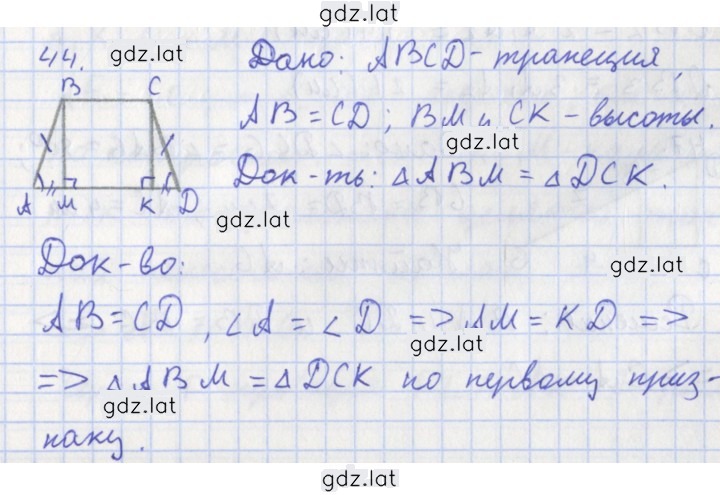 gdz.lat
44. gdz.lat Дано: ABCD - трапеция,
B C
AB = CD; BM и CK - высоты.
gdz.lat
Док-ть: △ABM = △DCK.
A M K D
gdz.lat
Док-во:
gdz.lat
AB = CD, ∠A = ∠D => AM = KD =>
gdz.lat
=> △ABM = △DCK по первому приз-
gdz.lat
наку.
gdz.lat